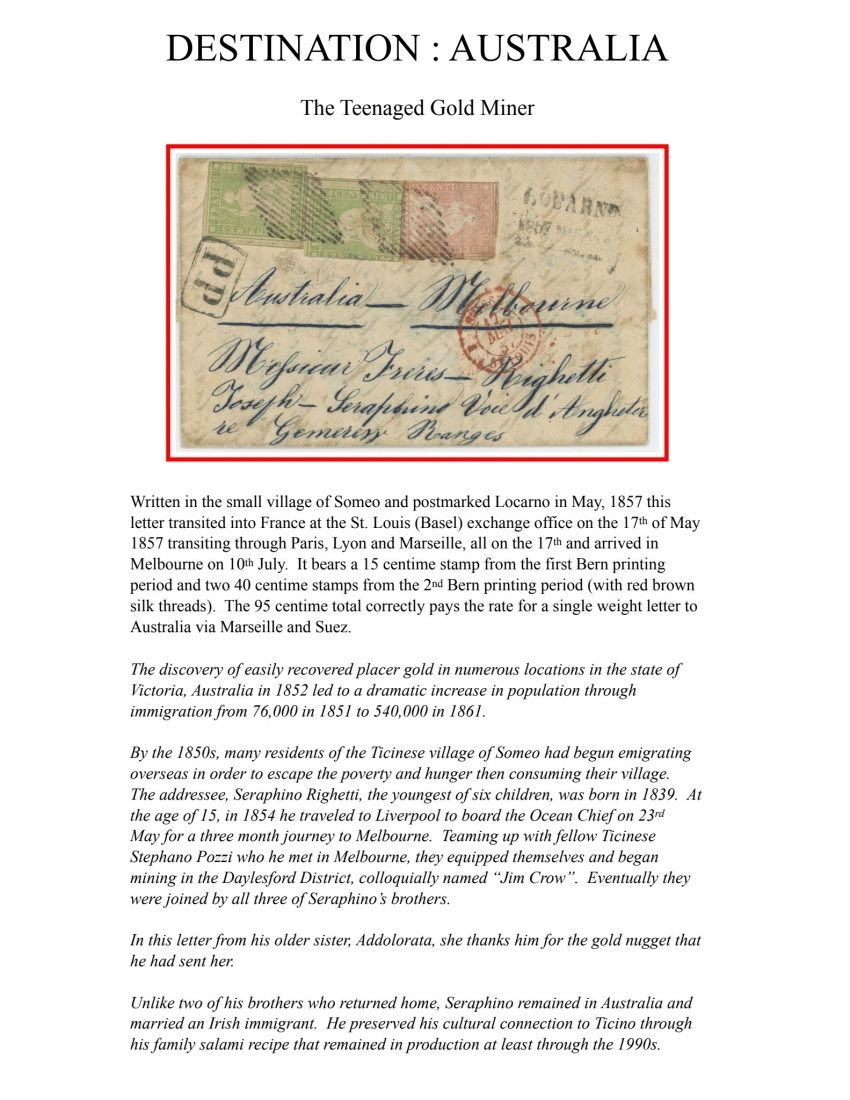 DESTINATION : AUSTRALIA
The Teenaged Gold Miner
FRANCO
CENTIMES
LOCARNO
P.P.
Australia — Melbourne
Messieur Freres — Righetti
Joseph — Seraphino Voie d'Angleter
re Gemeren Ranges
Written in the small village of Someo and postmarked Locarno in May, 1857 this
letter transited into France at the St. Louis (Basel) exchange office on the 17th of May
1857 transiting through Paris, Lyon and Marseille, all on the 17th and arrived in
Melbourne on 10th July. It bears a 15 centime stamp from the first Bern printing
period and two 40 centime stamps from the 2nd Bern printing period (with red brown
silk threads). The 95 centime total correctly pays the rate for a single weight letter to
Australia via Marseille and Suez.
The discovery of easily recovered placer gold in numerous locations in the state of
Victoria, Australia in 1852 led to a dramatic increase in population through
immigration from 76,000 in 1851 to 540,000 in 1861.
By the 1850s, many residents of the Ticinese village of Someo had begun emigrating
overseas in order to escape the poverty and hunger then consuming their village.
The addressee, Seraphino Righetti, the youngest of six children, was born in 1839. At
the age of 15, in 1854 he traveled to Liverpool to board the Ocean Chief on 23rd
May for a three month journey to Melbourne. Teaming up with fellow Ticinese
Stephano Pozzi who he met in Melbourne, they equipped themselves and began
mining in the Daylesford District, colloquially named “Jim Crow”. Eventually they
were joined by all three of Seraphino’s brothers.
In this letter from his older sister, Addolorata, she thanks him for the gold nugget that
he had sent her.
Unlike two of his brothers who returned home, Seraphino remained in Australia and
married an Irish immigrant. He preserved his cultural connection to Ticino through
his family salami recipe that remained in production at least through the 1990s.